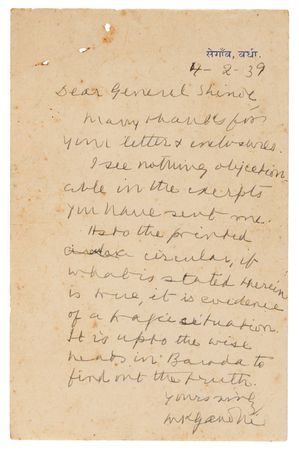 सेगाँव, वर्धा.
4-2-39
Dear General Shinde
Many thanks for
your letter & inclosures.
I see nothing objection-
able in the exerpts
you have sent me.
As to the printed
circular, if
what is stated therein
is true, it is evidence
of a tragic situation.
It is up to the wise
heads in Baroda to
find out the truth.
Yours sincly,
MKGandhi